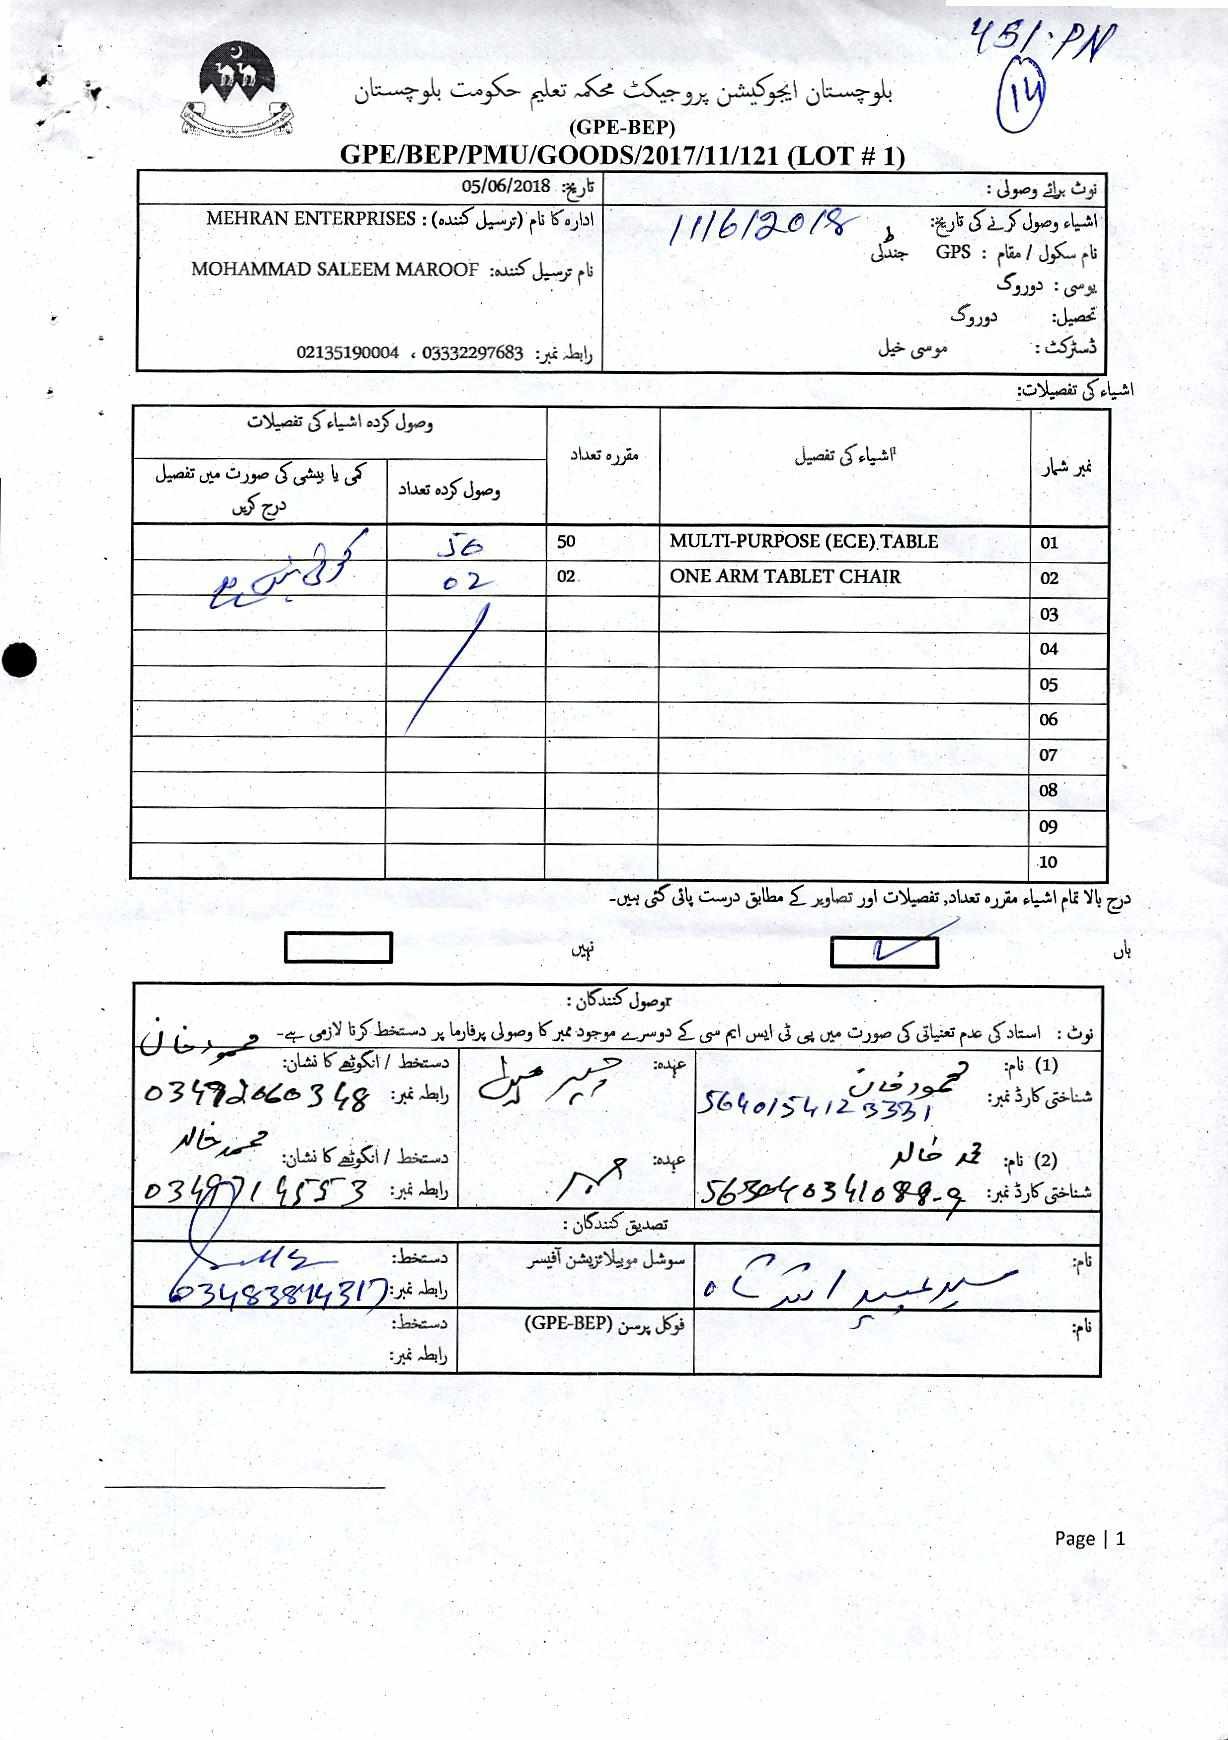 451·PN
14
بلوچستان ایجوکیشن پروجیکٹ محکمہ تعلیم حکومت بلوچستان
(GPE-BEP)
GPE/BEP/PMU/GOODS/2017/11/121 (LOT # 1)
نوٹ برائے وصولی :
اشیاء وصول کرنے کی تاریخ: 11/6/2018
نام سکول / مقام : GPS جندلی
یوسی : دوروگ
تحصیل: دوروگ
ڈسٹرکٹ : موسی خیل
تاریخ: 05/06/2018
ادارہ کا نام (ترسیل کنندہ) : MEHRAN ENTERPRISES
نام ترسیل کنندہ: MOHAMMAD SALEEM MAROOF
رابطہ نمبر: 03332297683 ، 02135190004
اشیاء کی تفصیلات:
نمبر شمار اشیاء کی تفصیل مقررہ تعداد وصول کردہ اشیاء کی تفصیلات
وصول کردہ تعداد کمی یا بیشی کی صورت میں تفصیل درج کریں
01 MULTI-PURPOSE (ECE) TABLE 50 50 کوئی نہیں ہے
02 ONE ARM TABLET CHAIR 02 02
03
04
05
06
07
08
09
10
درج بالا تمام اشیاء مقررہ تعداد, تفصیلات اور تصاویر کے مطابق درست پائی گئی ہیں۔
ہاں ✓ نہیں
وصول کنندگان :
نوٹ : استاد کی عدم تعنیاتی کی صورت میں پی ٹی ایس ایم سی کے دوسرے موجود ممبر کا وصولی پرفارما پر دستخط کرنا لازمی ہے۔
(1) نام: محمود خان عہدہ: دستخط / انگوٹھے کا نشان: محمود خان
شناختی کارڈ نمبر: 5640154123331 رابطہ نمبر: 03492060348
(2) نام: محمد خالد عہدہ: ممبر دستخط / انگوٹھے کا نشان: محمد خالد
شناختی کارڈ نمبر: رابطہ نمبر: 0349714553
تصدیق کنندگان :
نام: سید عبید اللہ شاہ سوشل موبیلائزیشن آفیسر دستخط:
رابطہ نمبر: 03483814317
نام: فوکل پرسن (GPE-BEP) دستخط:
رابطہ نمبر:
Page | 1